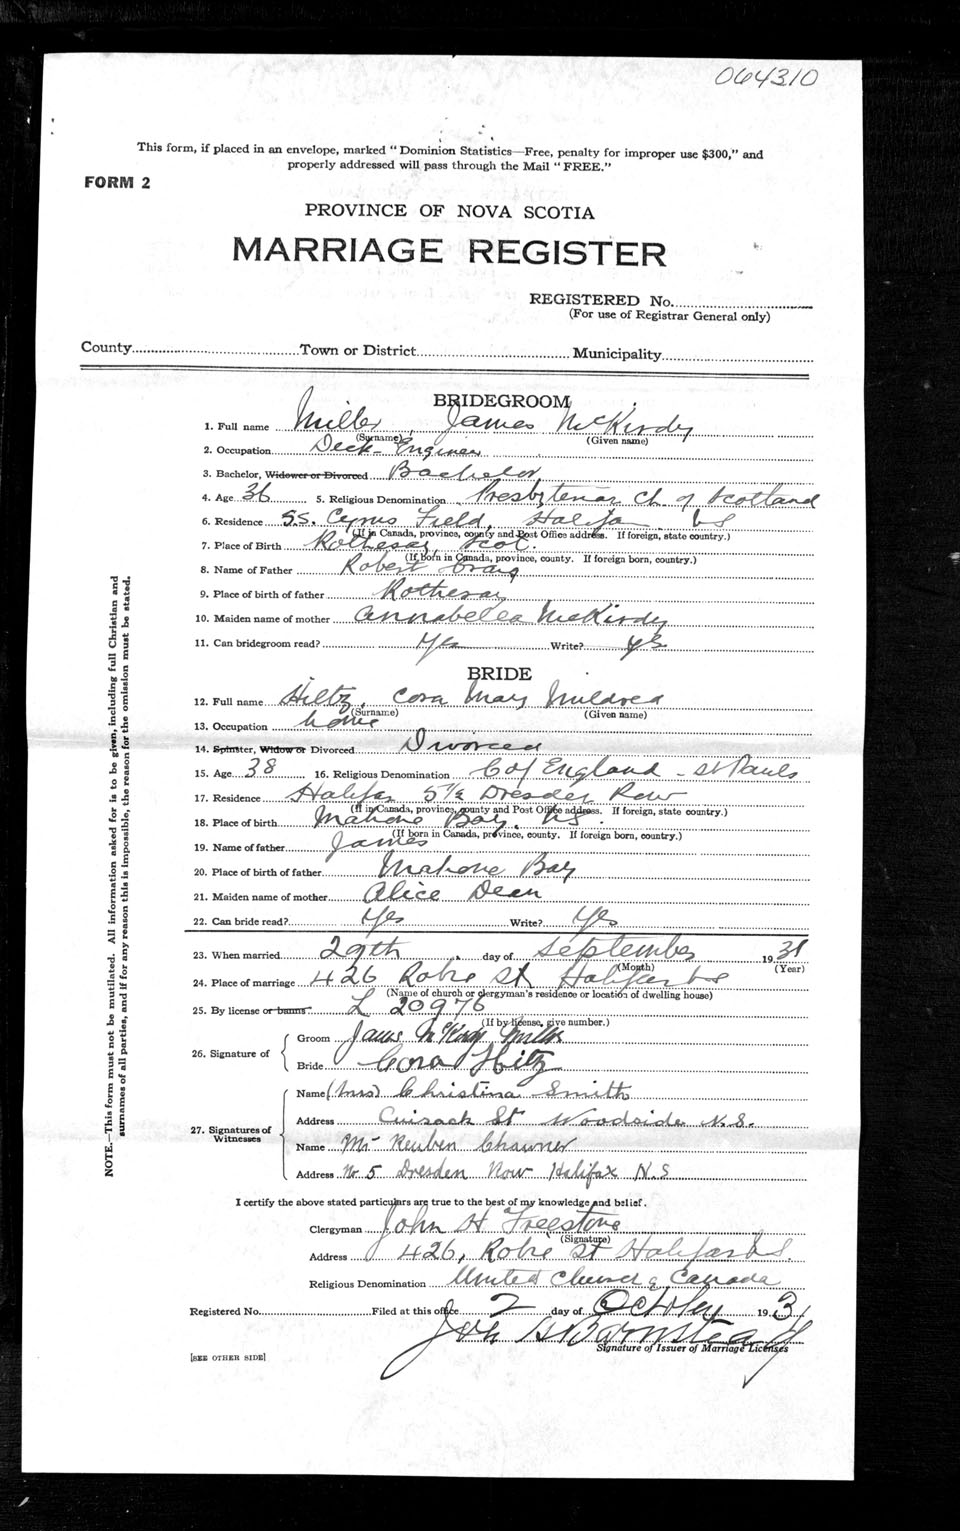 064310
This form, if placed in an envelope, marked "Dominion Statistics—Free, penalty for improper use $300," and
properly addressed will pass through the Mail "FREE."
FORM 2
PROVINCE OF NOVA SCOTIA
MARRIAGE REGISTER
REGISTERED No.
(For use of Registrar General only)
County Town or District Municipality
BRIDEGROOM
1. Full name Miller James McKirdy
(Surname) (Given name)
2. Occupation Deck-Engineer
3. Bachelor, Widower or Divorced Bachelor
4. Age 36 5. Religious Denomination Presbyterian Ch of Scotland
6. Residence S.S. Cyrus Field, Halifax NS
(If in Canada, province, county and Post Office address. If foreign, state country.)
7. Place of Birth Rothesay Scot.
(If born in Canada, province, county. If foreign born, country.)
8. Name of Father Robert Craig
9. Place of birth of father Rothesay
10. Maiden name of mother Annabella McKirdy
11. Can bridegroom read? Yes Write? yes
BRIDE
12. Full name Hiltz, Cora May Muldrea
(Surname) (Given name)
13. Occupation home
14. Spinster, Widow or Divorced Divorced
15. Age 38 16. Religious Denomination C of England - St Pauls
17. Residence Halifax 5½ Dresden Row
(If in Canada, province, county and Post Office address. If foreign, state country.)
18. Place of birth Mahone Bay, NS
(If born in Canada, province, county. If foreign born, country.)
19. Name of father James
20. Place of birth of father Mahone Bay
21. Maiden name of mother Alice Dean
22. Can bride read? Yes Write? Yes
23. When married 29th day of September 1931
(Month) (Year)
24. Place of marriage 426 Robie St Halifax NS
(Name of church or clergyman's residence or location of dwelling house)
25. By license or banns L 20976
(If by license, give number.)
26. Signature of
Groom James McKirdy Miller
Bride Cora Hiltz
27. Signatures of Witnesses
Name (Mrs) Christina Smith
Address Cuisack St Woodside N.S.
Name Mr Reuben Chawner
Address No. 5 Dresden Row Halifax N.S
I certify the above stated particulars are true to the best of my knowledge and belief.
Clergyman John H Freestone
(Signature)
Address 426, Robie St Halifax N.S.
Religious Denomination United Church of Canada
Registered No. Filed at this office 2 day of October 1931
Signature of Issuer of Marriage Licenses
[SEE OTHER SIDE]
NOTE.—This form must not be mutilated. All information asked for is to be given, including full Christian and
surnames of all parties, and if for any reason this is impossible, the reason for the omission must be stated.